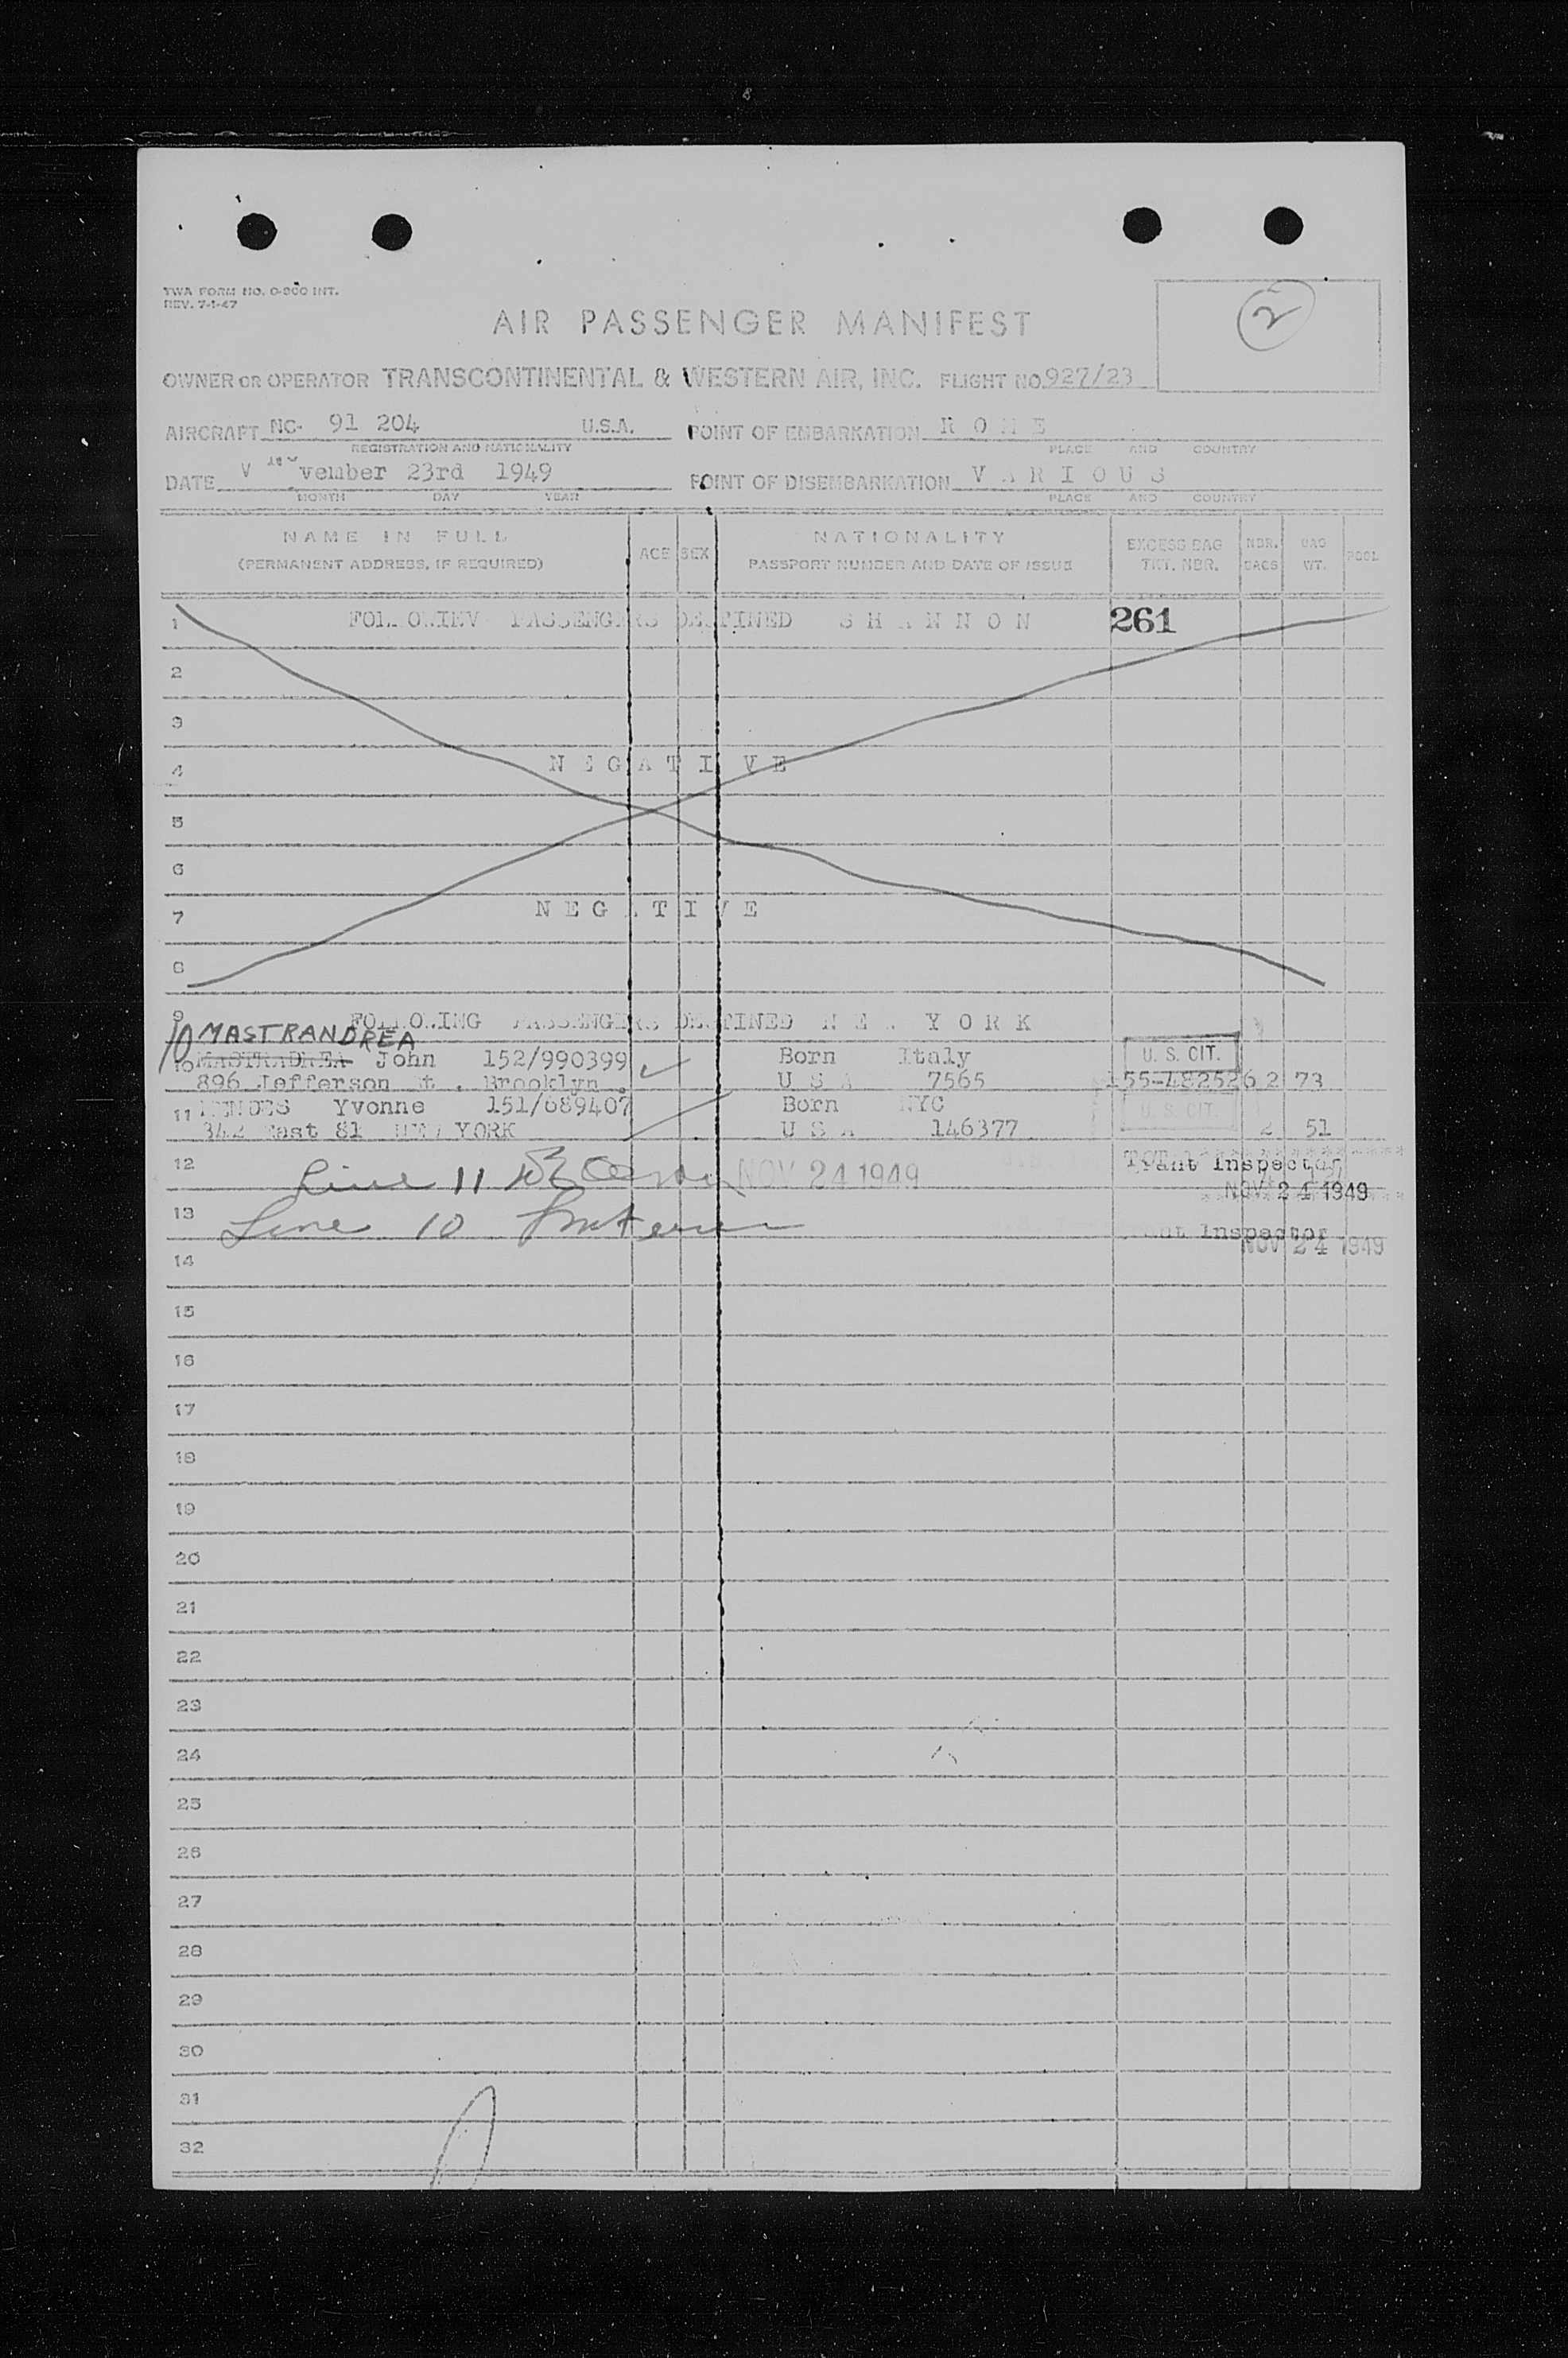 TWA FORM NO. O-900 INT.
REV. 7-1-47
2
AIR PASSENGER MANIFEST
OWNER OR OPERATOR TRANSCONTINENTAL & WESTERN AIR, INC. FLIGHT NO. 927/23
AIRCRAFT NC- 91 204 U.S.A. POINT OF EMBARKATION R O M E
REGISTRATION AND NATIONALITY PLACE AND COUNTRY
DATE vember 23rd 1949 POINT OF DISEMBARKATION V A R I O U S
MONTH DAY YEAR PLACE AND COUNTRY
NAME IN FULL
(PERMANENT ADDRESS, IF REQUIRED)
AGE SEX
NATIONALITY
PASSPORT NUMBER AND DATE OF ISSUE
EXCESS BAG
TKT. NBR.
NBR.
BAGS
BAG
WT.
POOL
1 PASSENGERS DESTINED S H A N N O N 261
2
3
4 N E G A T I V E
5
6
7 N E G A T I V E
8
9 FOLLOWING PASSENGERS DESTINED N E W Y O R K
10 MASTRANDREA
10 MASTRADREA John 152/990399 Born Italy U. S. CIT.
896 Jefferson St. Brooklyn. U S A 7565 155-482526 2 73
11 MENDES Yvonne 151/689407 Born NYC U. S. CIT.
342 East 81 NEW YORK U S A 146377 2 51
12 Line 11 NOV 24 1949 Inspector
NOV 24 1949
13 Line 10 Inspector
NOV 24 1949
14
15
16
17
18
19
20
21
22
23
24
25
26
27
28
29
30
31
32